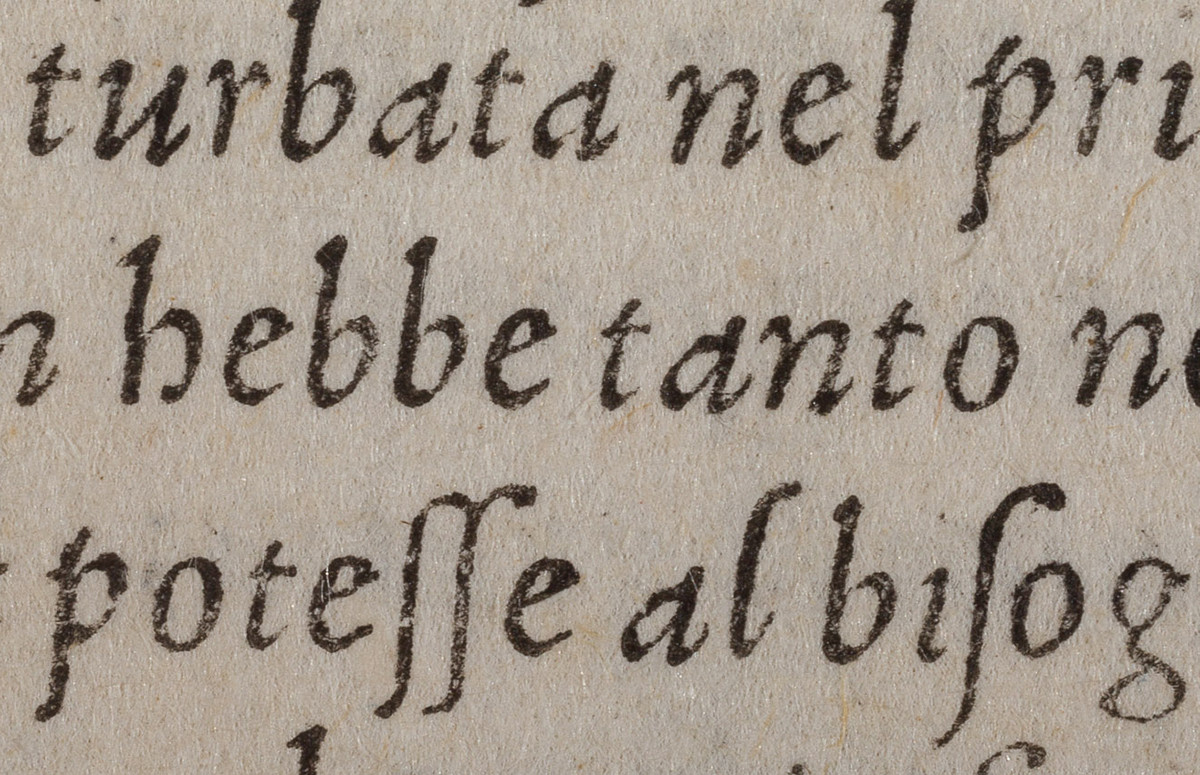 turbata nel pri
n hebbe tanto n
poteſſe al biſog